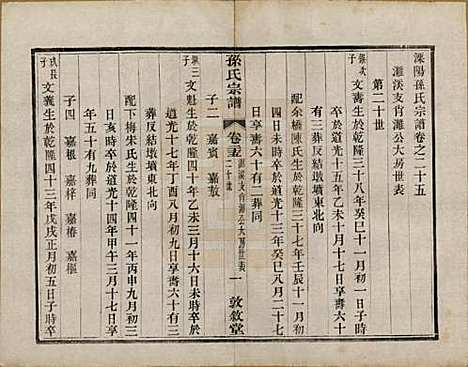 溧陽孫氏宗譜卷之二十五
灘渶支肯灘公大房世表
第二十世
張次子
文壽生於乾隆三十八年癸巳十一月初一日子時
卒於道光十五年乙未十月十七日享壽六十
有三葬反結墩墳東北向
配余橋陳氏生於乾隆三十七年壬辰十一月初
四日未時卒於道光十三年癸巳八月二十七
日享壽六十有二葬同
子二 嘉賓 嘉敖
孫氏宗譜
卷二十五
一
敦敘堂
三子
文魁生於乾隆四十年乙未三月十六日未時卒於
道光十七年丁酉八月初九日享壽六十有三
葬反結墩墳東北向
配下梅宋氏生於乾隆四十一年丙申九月初二
日亥時卒於道光十四年甲午三月十七日享
年五十有九葬同
子四 嘉根 嘉梓 嘉椿 嘉樞
長子
文冀生於乾隆四十三年戊戌正月初五日子時卒